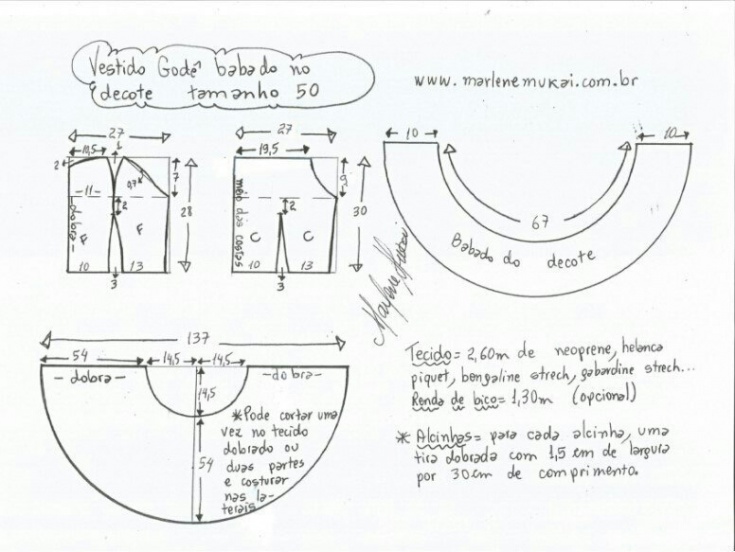 Vestido Godê babado no
decote tamanho 50
www.marlenemukai.com.br
27
10,5
2
7
0,7
-11-
2
dobra-
F
F
28
10
13
3
27
19,5
9
meio das costas
2
30
C
C
10
13
3
10
10
67
Babado do decote
Marlene Mukai
137
54
14,5
14,5
-dobra-
-dobra-
14,5
54
*Pode cortar uma
vez no tecido
dobrado ou
duas partes
e costurar
nas la-
terais
Tecido= 2,60m de neoprene, helanca
piquet, bengaline strech, gabardine strech...
Renda de bico= 1,30m (opcional)
* Alcinhas= para cada alcinha, uma
tira dobrada com 1,5 cm de largura
por 30cm de comprimento.